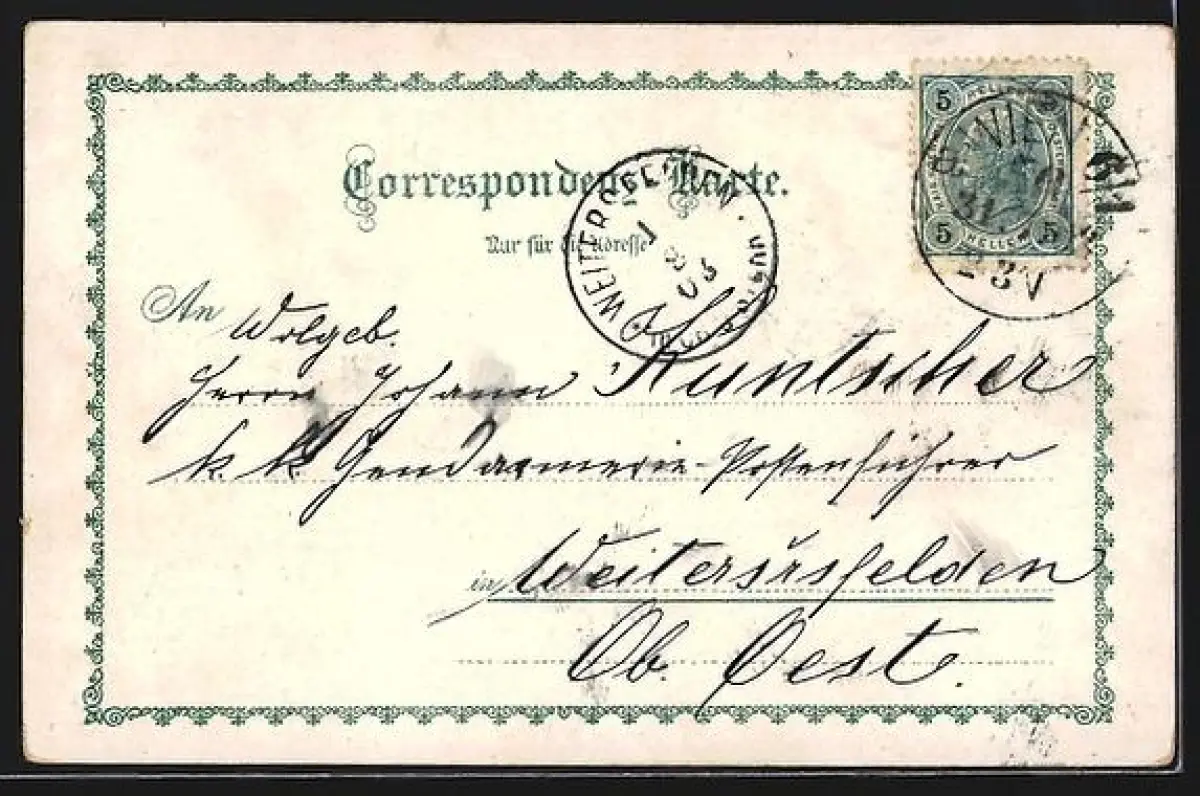 Correspondenz-Karte.
Nur für die Adresse
5 HELLER 5
5 HELLER 5
WIEN 6/1
31
2-3N
WEITERSFELDEN
1 8 03
An Wolgeb.
Herrn Johann Kuntscher
k. k. Gendarmerie-Postenführer
in Weitersfelden
Ob. Oest.